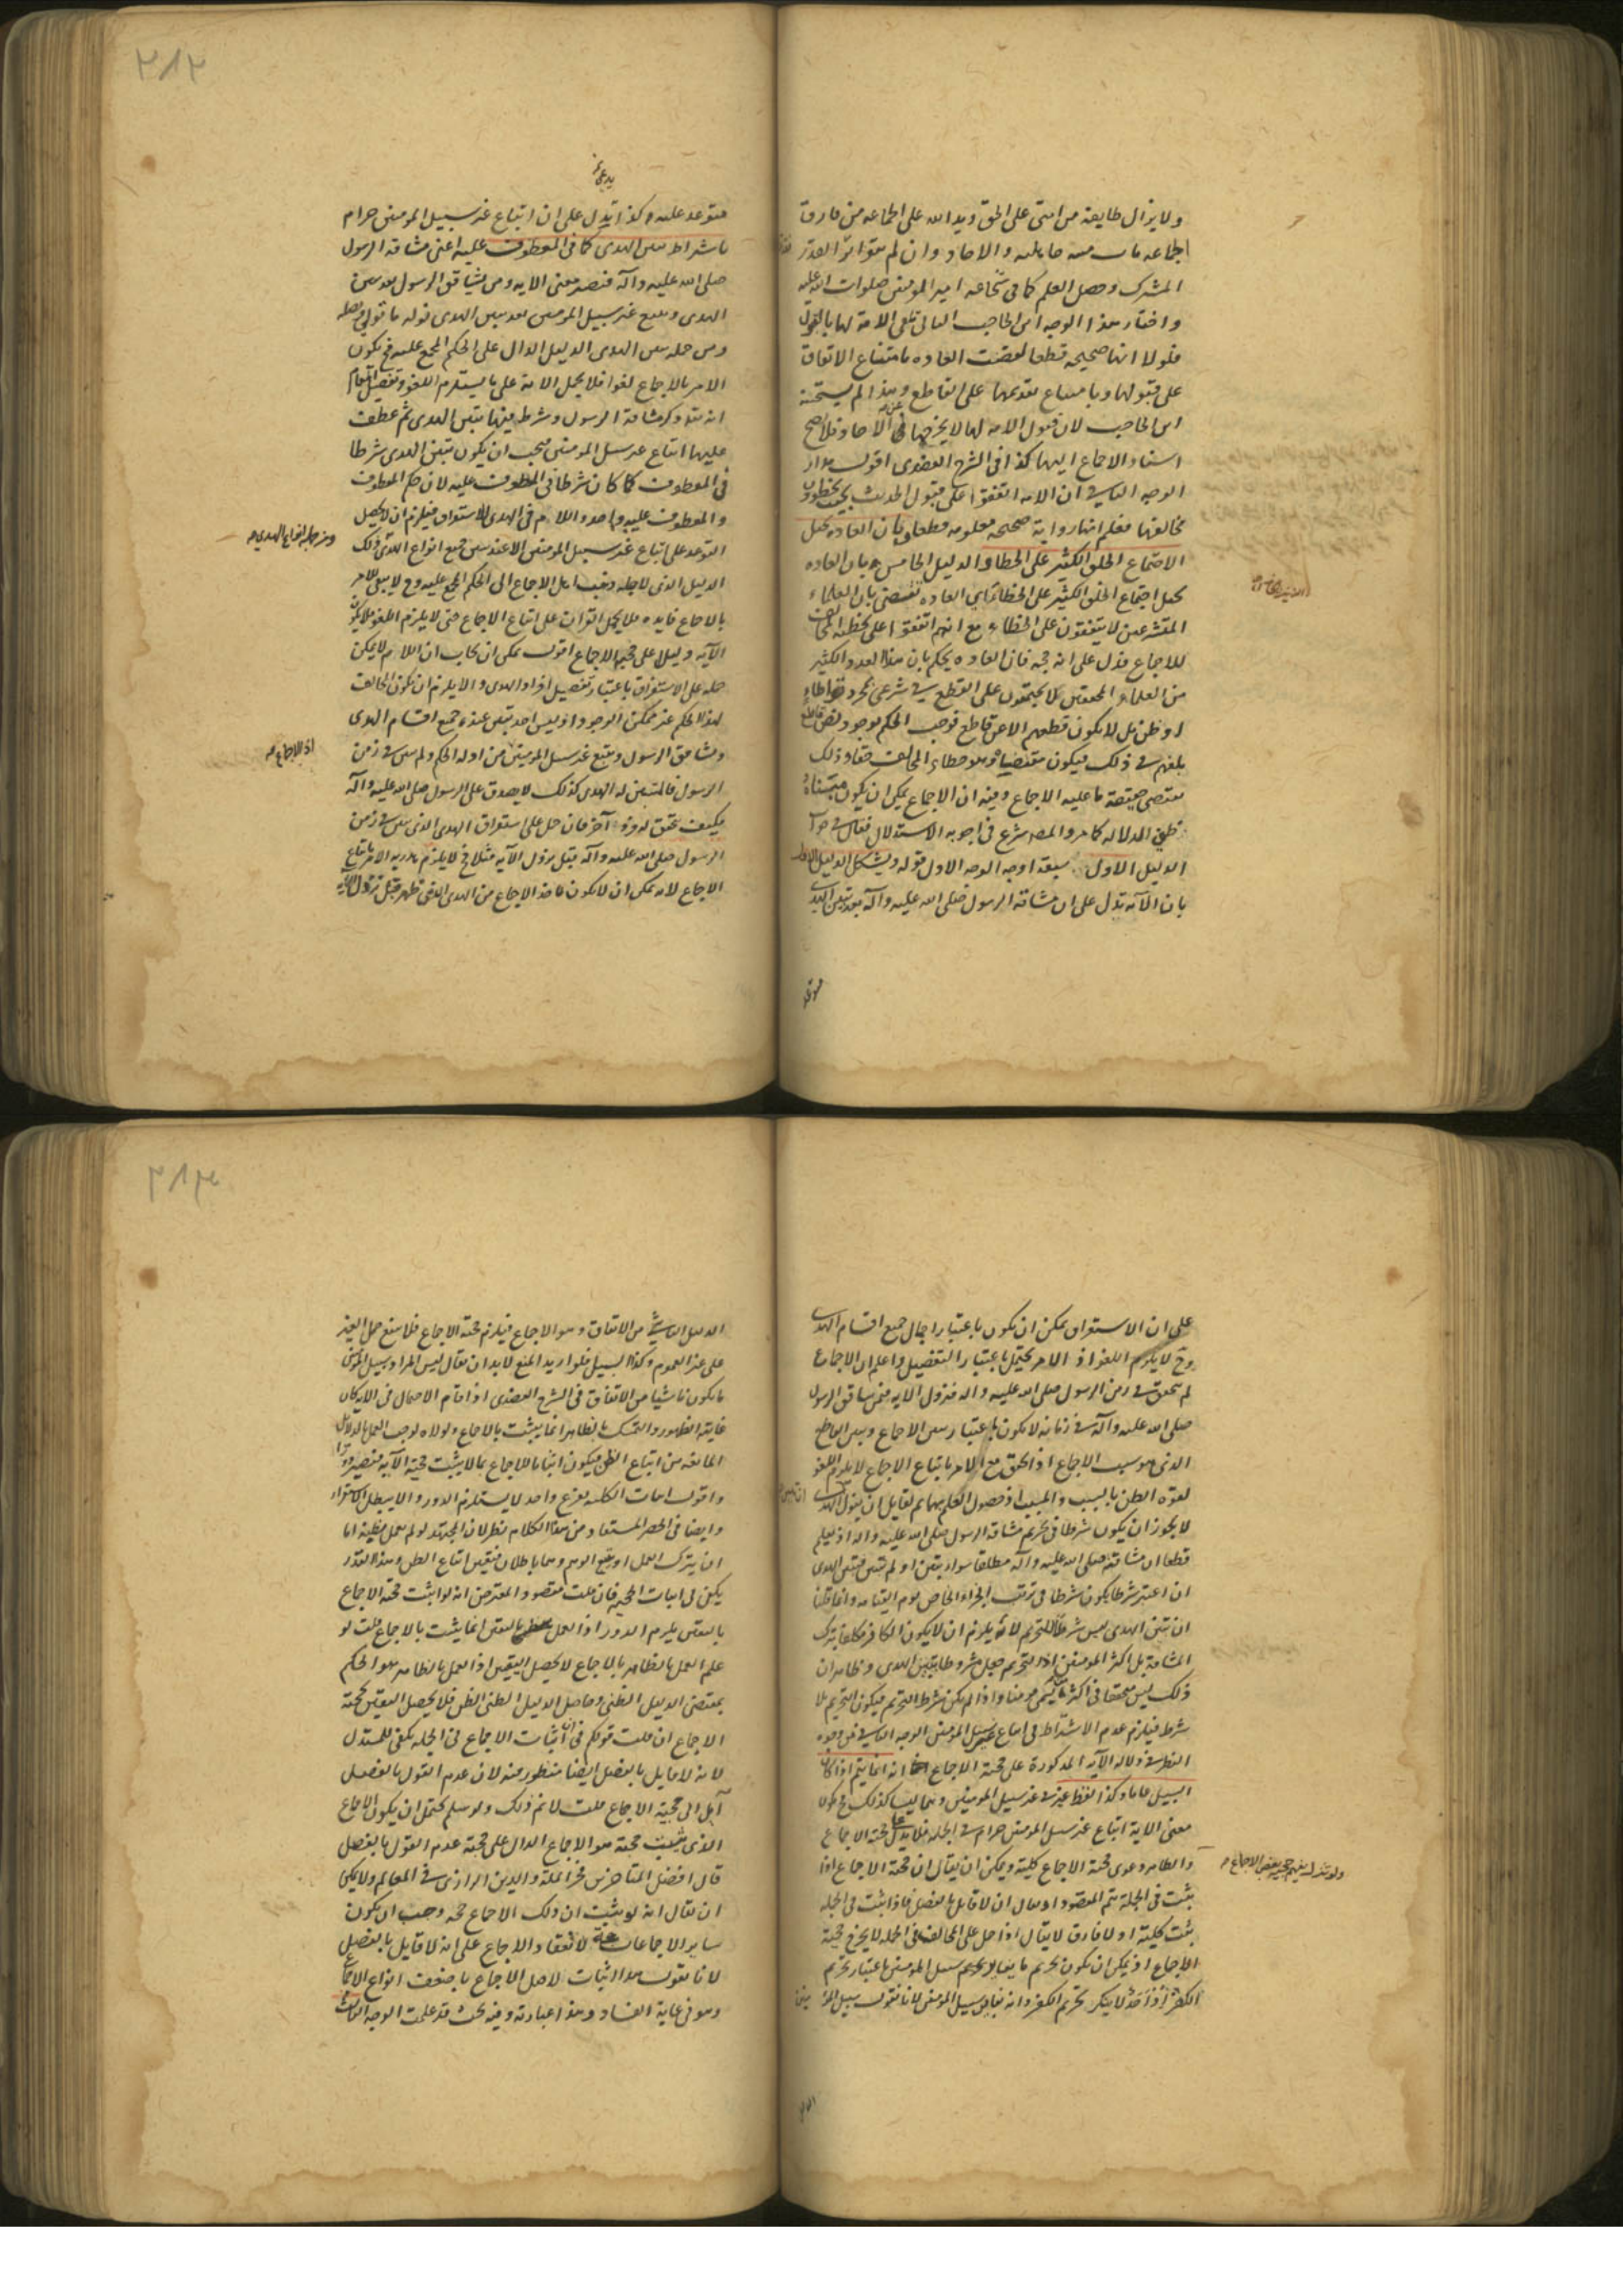 ولا يزال طايفة من امتى على الحق ويد الله على الجماعه من فارق
الجماعه مات ميته جاهليه والاحاد وان لم يتواتر القدر
المشترك وحصل العلم كما فى شجاعه امير المومنين صلوات الله عليه
واختار هذا الوجه ابن الحاجب الثانى تلقى الامة لها بالقبول
فلولا انها صحيحه قطعا لقضت العاده بامتناع الاتفاق
على قبولها وبامتناع تقديمها على القاطع وهذا لم يستحسنه
ابن الحاجب لان قبول الامه لها لا يخرجها عن الاحاد فلا يصح
اسناد الاجماع اليها كذا فى الشرح العضدى اقول مدار
الوجه الثانى ان الامه اتفقوا على قبول الحديث بحيث يخطؤون
مخالفها فعلم انها رواية صحيحه معلومه قطعا بان العاده تحيل
الاجتماع الخلق الكثير على الخطا والدليل الخامس بان العاده
تحيل اجتماع الخلق الكثير على الخطا اى العاده تقتضى بان العلماء
المتشرعين لا يتفقون على الخطاء مع انهم اتفقوا على تخطئه المخالف
للاجماع فدل على انه حجه فان العاده يحكم بان هذا العدد الكثير
من العلماء المحققين لا يجتمعون على القطع فى شرعى بمجرد تواطاء
او ظن بل لا يكون قطعهم الا عن قاطع فوجب الحكم بوجود نص قاطع
بلغهم فى ذلك فيكون مقتضاه وهو خطاء المخالف حقا وذلك
يقتضى حقيقة ما عليه الاجماع وفيه ان الاجماع يمكن ان يكون مستنده
ظنى الدلاله كما مر والمصه شرع فى اجوبه الاستدلال فقال فى جواب
الدليل الاول سبعة اوجه الوجه الاول قوله ويشكل الدليل الاول
بان الآيه تدل على ان مشاقة الرسول صلى الله عليه وآله بعد تبين الهدى
متوعد عليه وكذا يدل على ان اتباع غير سبيل المومنين حرام
باشتراط تبين الهدى كما فى المعطوف عليه اعنى مشاقة الرسول
صلى الله عليه وآله فتصير معنى الايه ومن يشاقق الرسول بعد تبين
الهدى ويتبع غير سبيل المومنين بعد تبين الهدى نوله ما تولى ونصله
ومن جمله تبين الهدى الدليل الدال على الحكم المجمع عليه فح يكون
الامر بالاجماع لغوا فلا يحمل الاية على ما يستلزم اللغو وتفصيل المقام
انه تعا ذكر مشاقة الرسول وشرط فيها تبين الهدى ثم عطف
عليها اتباع غير سبيل المومنين فيجب ان يكون تبين الهدى شرطا
فى المعطوف كما كان شرطا فى المعطوف عليه لان حكم المعطوف
والمعطوف عليه واحد واللام فى الهدى للاستغراق فيلزم ان لا يحصل
التوعد على اتباع غير سبيل المومنين الا عند تبين جميع انواع الهدى وذلك
ومن جملة انواع الهدى صه
الدليل الذى لاجله ذهب اهل الاجماع الى الحكم المجمع عليه وح لا يبقى للامر
بالاجماع فايده فلا يحمل القرآن على اتباع الاجماع حتى لا يلزم اللغو فلا يكون
الآية دليلا على حجية الاجماع اقول يمكن ان يجاب ان اللام لا يمكن
حمله على الاستغراق باعتبار تفصيل افراد الهدى والا يلزم ان يكون المخالفة
لهذا الحكم غير ممكن الوجود اذ ليس احد تبين عنده جميع اقسام الهدى
ويشاقق الرسول ويتبع غير سبيل المومنين من اوله الحكم ولم تبين فى زمن
اذ الاجماع صه
الرسول فالمتبين له الهدى كذلك لا يصدق على الرسول صلى الله عليه وآله
فكيف تحقق له فرد آخر فان حمل على استغراق الهدى الذى تبين فى زمن
الرسول صلى الله عليه وآله قبل نزول الآيه مثلا فح لا يلزم الامر باتباع
الاجماع لانه يمكن ان لا يكون ماخذ الاجماع من الهدى الذى ظهر قبل نزول الآيه
على ان الاستغراق يمكن ان يكون باعتبار اجمال جميع اقسام الهدى
وح لا يلزم اللغو اذ الامر يحتمل باعتبار التفصيل واعلم ان الاجماع
لم يتحقق فى زمن الرسول صلى الله عليه واله فنزول الايه فمن شاقق الرسول
صلى الله عليه وآله فى زمانه لا يكون باعتبار تبين الاجماع وتبين القاطع
الذى هو سبب الاجماع اذ الحق مع الامر باتباع الاجماع لا يلزم اللغو
لقوة الظن بالسبب والمسبب اذ حصول العلم بهما ثم لقايل ان يقول
لا يجوز ان يكون شرطا فى تحريم مشاقة الرسول صلى الله عليه واله اذ يعلم
قطعا ان مشاقته صلى الله عليه وآله مطلقا سواء تبين او لم تبين فتبين الهدى
ان اعتبر شرطا يكون شرطا فى ترتب الجزاء الخاص يوم القيامه وانما قلنا
ان تبين الهدى ليس شرطا للتحريم لانه يلزم ان لا يكون الكافر مكلفا بترك
المشاقة بل اكثر المومنين اذ التحريم جعل مشروطا بتبين الهدى وظاهر ان
ذلك ليس متحققا فى اكثر من يسمى مومنا واذا لم يكن شرط التحريم فيكون التحريم بلا
شرط فيلزم عدم الاشتراط فى اتباع غير سبيل المومنين الوجه الثانى من وجوه
النظر فى دلالة الآيه المذكورة على حجية الاجماع انه انما يتم اذا كان
السبيل عاما وكذا لفظ غير فى غير سبيل المومنين وهما ليسا كذلك فح يكون
معنى الاية اتباع غير سبيل المومنين حرام فى الجملة فلا يدل على حجية الاجماع
والظاهر دعوى حجية الاجماع كلية ويمكن ان يقال ان حجية الاجماع اذا
ثبت فى الجملة يتم المقصود او يقال ان لا قايل بالفصل فاذا ثبت فى الجمله
ثبت كلية او لا فارق لا يقال اذا حمل على المخالف فى الجمله لا يخرج حجية
الاجماع اذ يمكن ان يكون تحريم ما يغاير تحريم سبيل المومنين باعتبار تحريم
الكفر اذ احد لا ينكر تحريم الكفر وانه يغاير سبيل المومنين لانا نقول سبيل المؤ
الدليل الناشئ من الاتفاق وهو الاجماع فيلزم حجية الاجماع فلا يمنع حمل الغير
على غير العموم وكذا السبيل فلو اريد المنع لابد ان يقال ليس المراد بسبيل المؤمنين
ما يكون ناشيا من الاتفاق فى الشرح العضدى اذا قام الاحتمال فى الايه كان
غايته الظهور والتمسك بالظاهر انما يثبت بالاجماع ولولاه لوجب العمل بالدلائل
المانعه من اتباع الظن فيكون اثباتا للاجماع بما لا يثبت حجية الا به فيصير دورا
واقول اثبات الكليه بفرع واحد لا يستلزم الدور والا يبطل الاستقراء
وايضا فى الحصر المستفاد من هذا الكلام نظر لان المجتهد لو لم يعمل بظنه اما
ان يترك العمل او يتبع الوهم وهما باطلان فتعين اتباع الظن وهذا القدر
يكفى فى اثبات الحجيه فان قلت مقصود المعترض انه لو اثبت حجية الاجماع
باليقين يلزم الدور اذ العمل باليقين انما يثبت بالاجماع قلت لو
علم العمل بالظاهر بالاجماع لا يحصل اليقين اذ العمل بالظاهر هو الحكم
بمقتضى الدليل الظنى وحاصل الدليل الظنى الظن فلا يحصل اليقين بحجية
الاجماع ان قلت قولكم فى ان اثبات الاجماع فى الجمله يكفى للمستدل
لانه لا قايل بالفصل ايضا منظور فيه لان عدم القول بالفصل
آيل الى حجية الاجماع قلت لا نم ذلك ولو سلم يحتمل ان يكون الاجماع
الذى يثبت حجية هو الاجماع الدال على حجية عدم القول بالفصل
قال افضل المتاخرين فخر الملة والدين الرازى فى المعالم ولا يمكن
ان يقال انه لو ثبت ان ذلك الاجماع حجه وجب ان يكون
ساير الاجماعات حجة لانعقاد الاجماع على انه لا قايل بالفصل
لانا نقول هذا اثبات لاصل الاجماع باضعف انواع الاجماع
وهو فى غاية الفساد وهذا عبارته وفيه بحث قد علمت الوجه الثالث